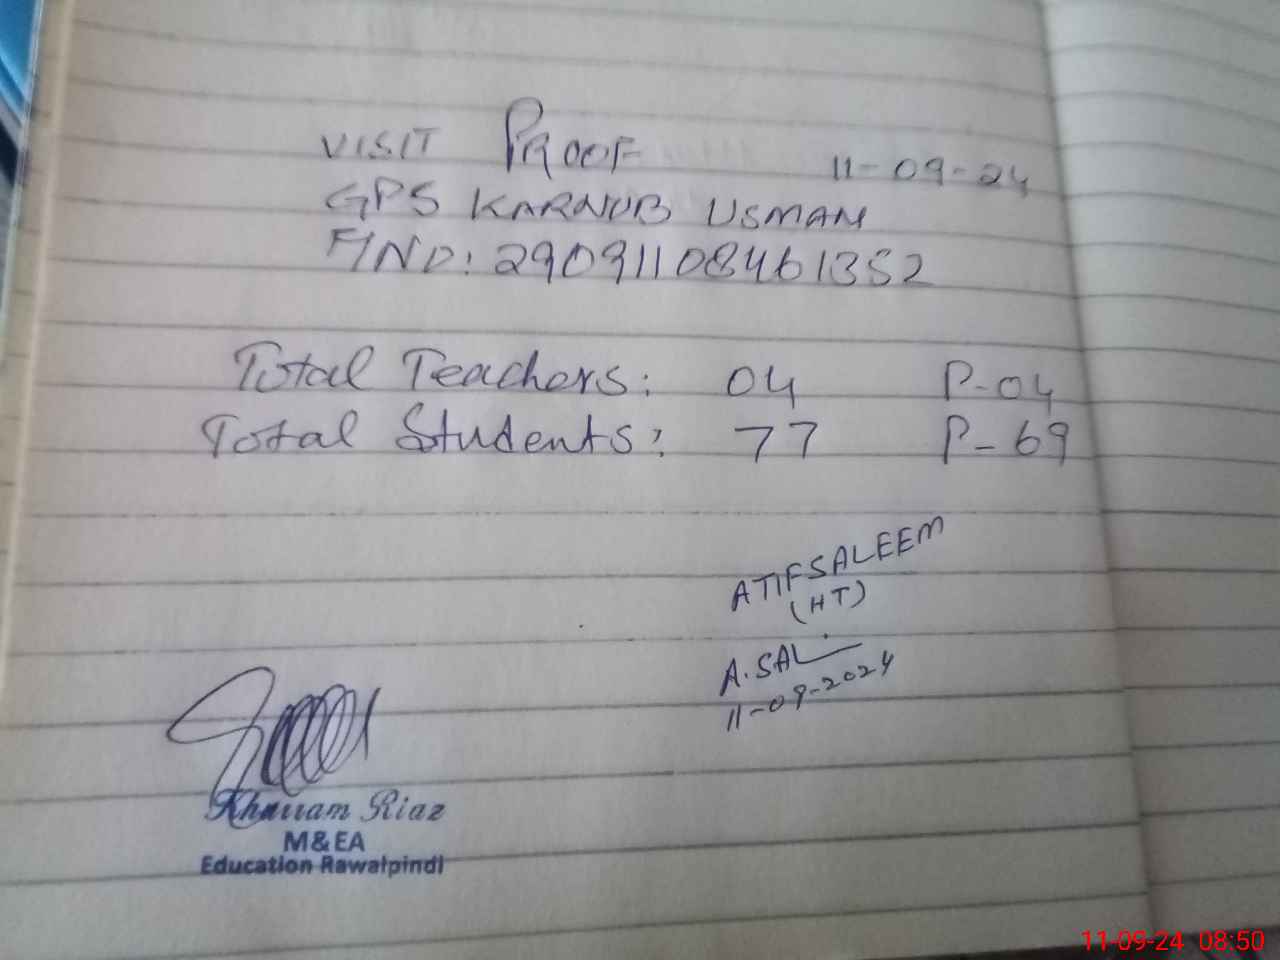 VISIT PROOF 11-09-24
GPS KARNUB USMAN
FIND: 29091108461352
Total Teachers: 04 P-04
Total Students: 77 P-69
ATIF SALEEM
(HT)
A.SAL
11-09-2024
Khurram Riaz
M&EA
Education Rawalpindi
11-09-24 08:50